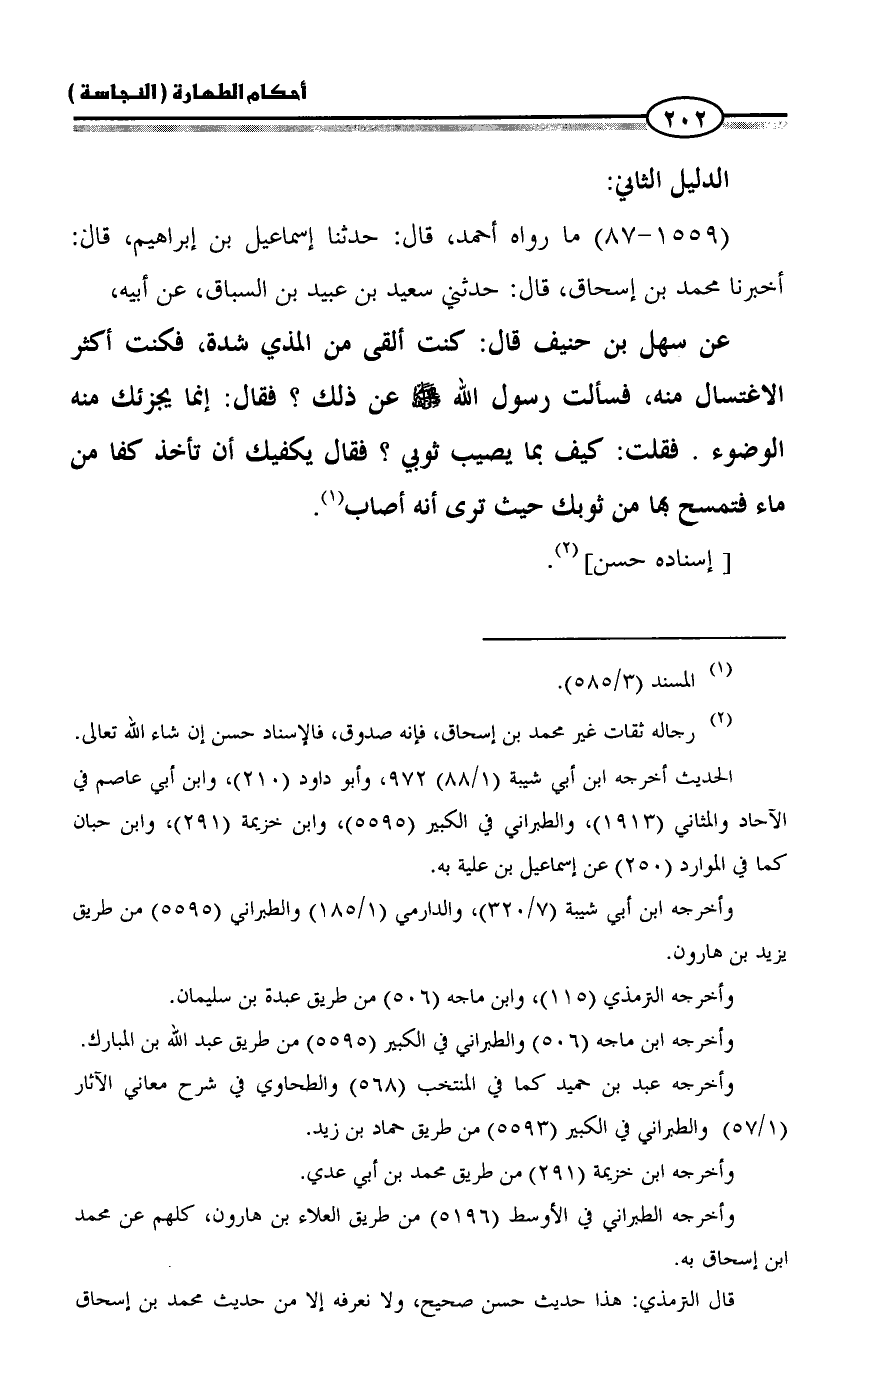 أحكام الطهارة ( النجاسة )
٢٠٢
الدليل الثاني:
(١٥٥٩-٨٧) ما رواه أحمد، قال: حدثنا إسماعيل بن إبراهيم، قال:
أخبرنا محمد بن إسحاق، قال: حدثني سعيد بن عبيد بن السباق، عن أبيه،
عن سهل بن حنيف قال: كنت ألقى من المذي شدة، فكنت أكثر
الاغتسال منه، فسألت رسول الله ﷺ عن ذلك ؟ فقال: إنما يجزئك منه
الوضوء . فقلت: كيف بما يصيب ثوبي ؟ فقال يكفيك أن تأخذ كفا من
ماء فتمسح بها من ثوبك حيث ترى أنه أصاب(١).
[ إسناده حسن] (٢).
(١) المسند (٥٨٥/٣).
(٢) رجاله ثقات غير محمد بن إسحاق، فإنه صدوق، فالإسناد حسن إن شاء الله تعالى.
الحديث أخرجه ابن أبي شيبة (٨٨/١) ٩٧٢، وأبو داود (٢١٠)، وابن أبي عاصم في
الآحاد والمثاني (١٩١٣)، والطبراني في الكبير (٥٥٩٥)، وابن خزيمة (٢٩١)، وابن حبان
كما في الموارد (٢٥٠) عن إسماعيل بن علية به.
وأخرجه ابن أبي شيبة (٣٢٠/٧)، والدارمي (١٨٥/١) والطبراني (٥٥٩٥) من طريق
يزيد بن هارون.
وأخرجه الترمذي (١١٥)، وابن ماجه (٥٠٦) من طريق عبدة بن سليمان.
وأخرجه ابن ماجه (٥٠٦) والطبراني في الكبير (٥٥٩٥) من طريق عبد الله بن المبارك.
وأخرجه عبد بن حميد كما في المنتخب (٥٦٨) والطحاوي في شرح معاني الآثار
(٥٧/١) والطبراني في الكبير (٥٥٩٣) من طريق حماد بن زيد.
وأخرجه ابن خزيمة (٢٩١) من طريق محمد بن أبي عدي.
وأخرجه الطبراني في الأوسط (٥١٩٦) من طريق العلاء بن هارون، كلهم عن محمد
ابن إسحاق به.
قال الترمذي: هذا حديث حسن صحيح، ولا نعرفه إلا من حديث محمد بن إسحاق